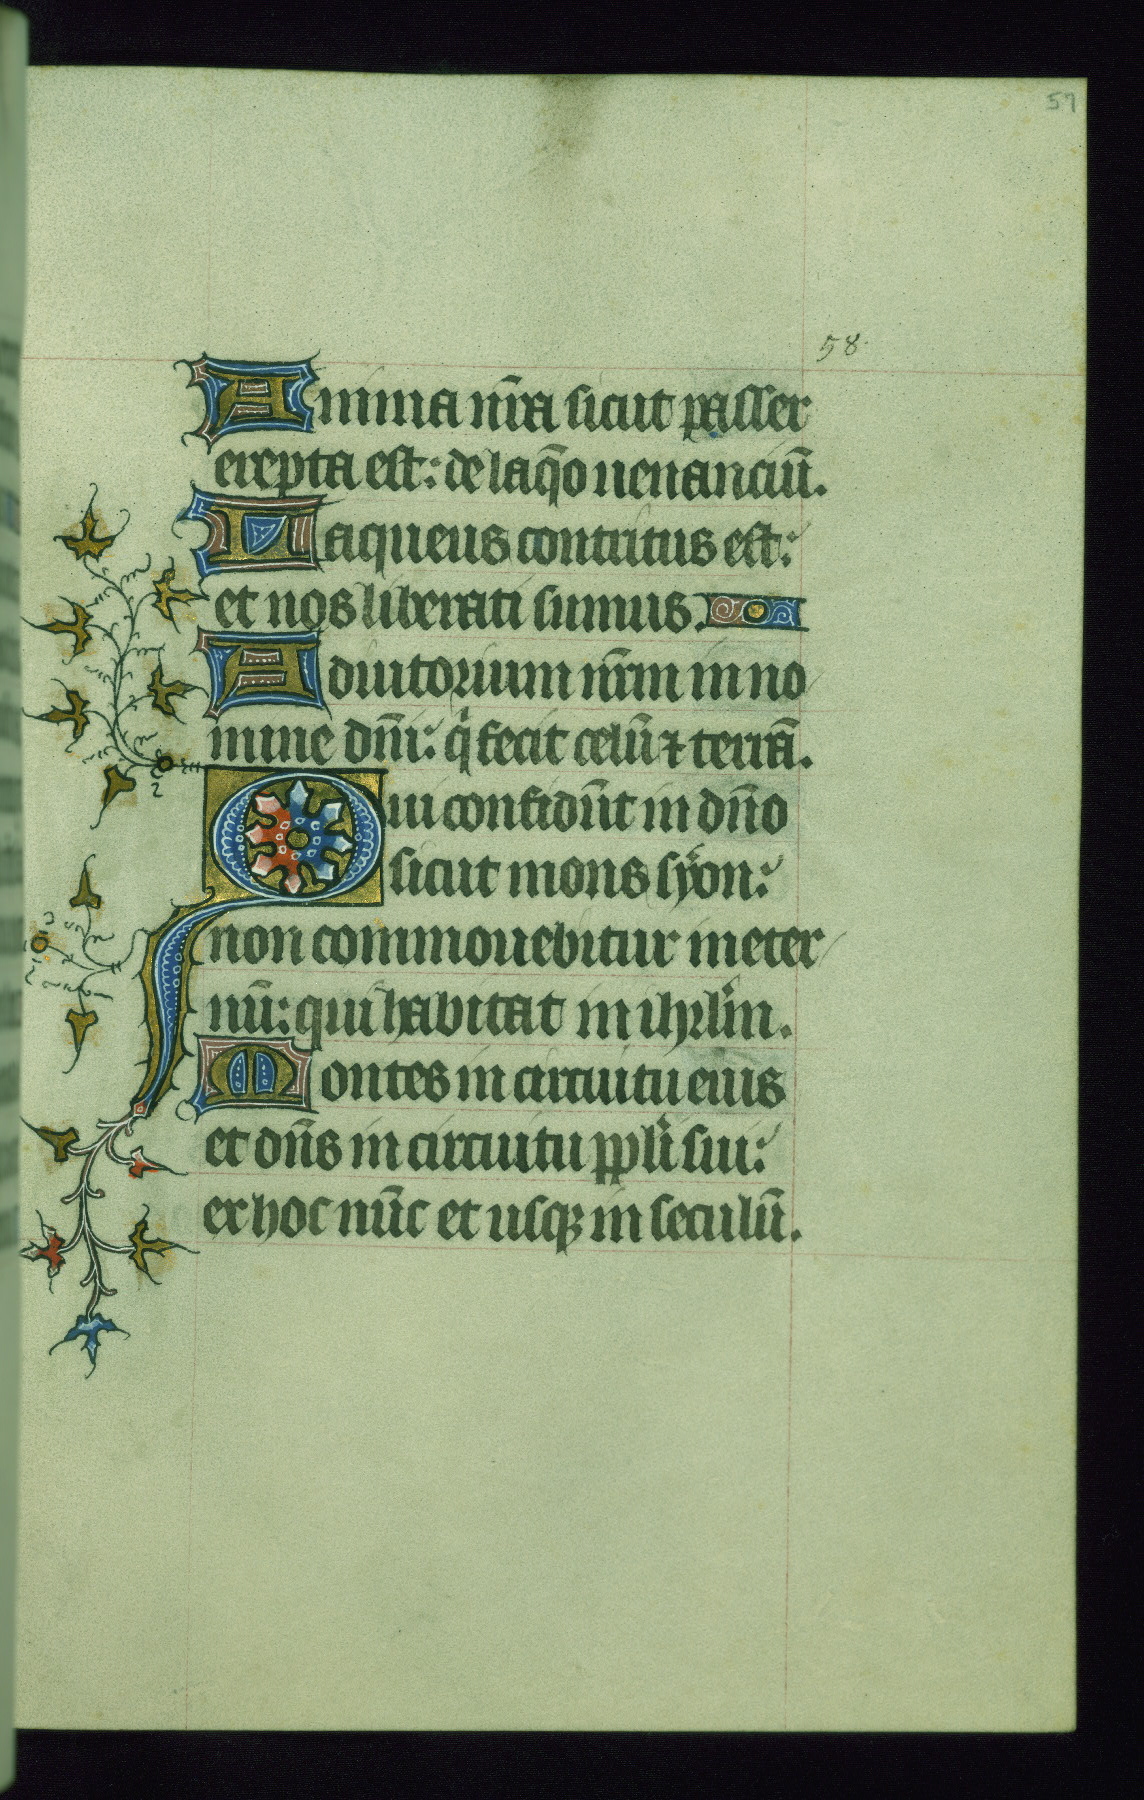 57
58
Anima nr̄a sicut passer
erepta est: de laq̄o uenanciū.
Laqueus contritus est:
et nos liberati sumus.
Adiutorium nr̄m in no
mine dn̄i: qͥ fecit celū ⁊ terrā.
Qui confidūt in dn̄o
sicut mons syon:
non commouebitur in eter
nū: qui habitat in ihrl̄m.
Montes in circuitu eius
et dn̄s in circuitu ppl̄i sui:
ex hoc nūc et usqꝫ in seculū.